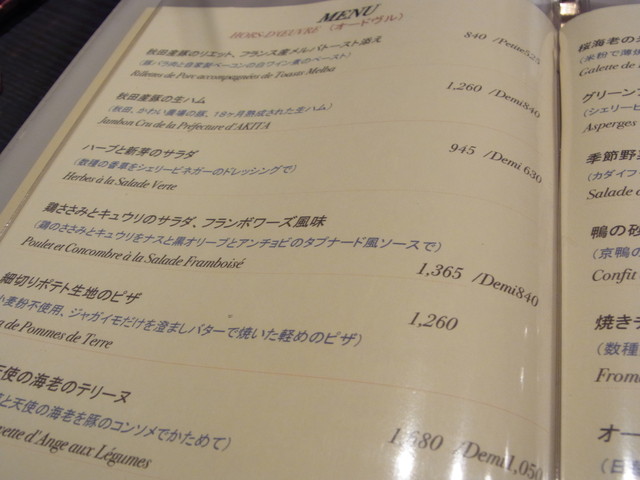 MENU
HORS-D'ŒUVRE (オードヴル)
秋田産豚のリエット、フランス産メルバトースト添え
(豚バラ肉と自家製ベーコンの白ワイン煮のペースト)
Rillettes de Porc accompagnées de Toasts Melba
840 /Petite525
秋田産豚の生ハム
(秋田、かわい農場の豚、18ヶ月熟成された生ハム)
Jambon Cru de la Préfecture d'AKITA
1,260 /Demi840
ハーブと新芽のサラダ
(数種の香草をシェリービネガーのドレッシングで)
Herbes à la Salade Verte
945 /Demi 630
鶏ささみとキュウリのサラダ、フランボワーズ風味
(鶏のささみとキュウリをナスと黒オリーブとアンチョビのタプナード風ソースで)
Poulet et Concombre à la Salade Framboisé
1,365 /Demi840
細切りポテト生地のピザ
小麦粉不使用、ジャガイモだけを澄ましバターで焼いた軽めのピザ)
de Pommes de Terre
1,260
天使の海老のテリーヌ
と天使の海老を豚のコンソメでかためて)
vette d'Ange aux Légumes
1,680 /Demi1,050
桜海老の
(米粉で薄焼
Galette de
グリーンア
(シェリービ
Asperges
季節野菜
(カダイフ
Salade
鴨の砂
(京鴨の
Confit
焼きチ
(数種
From
オー
(日